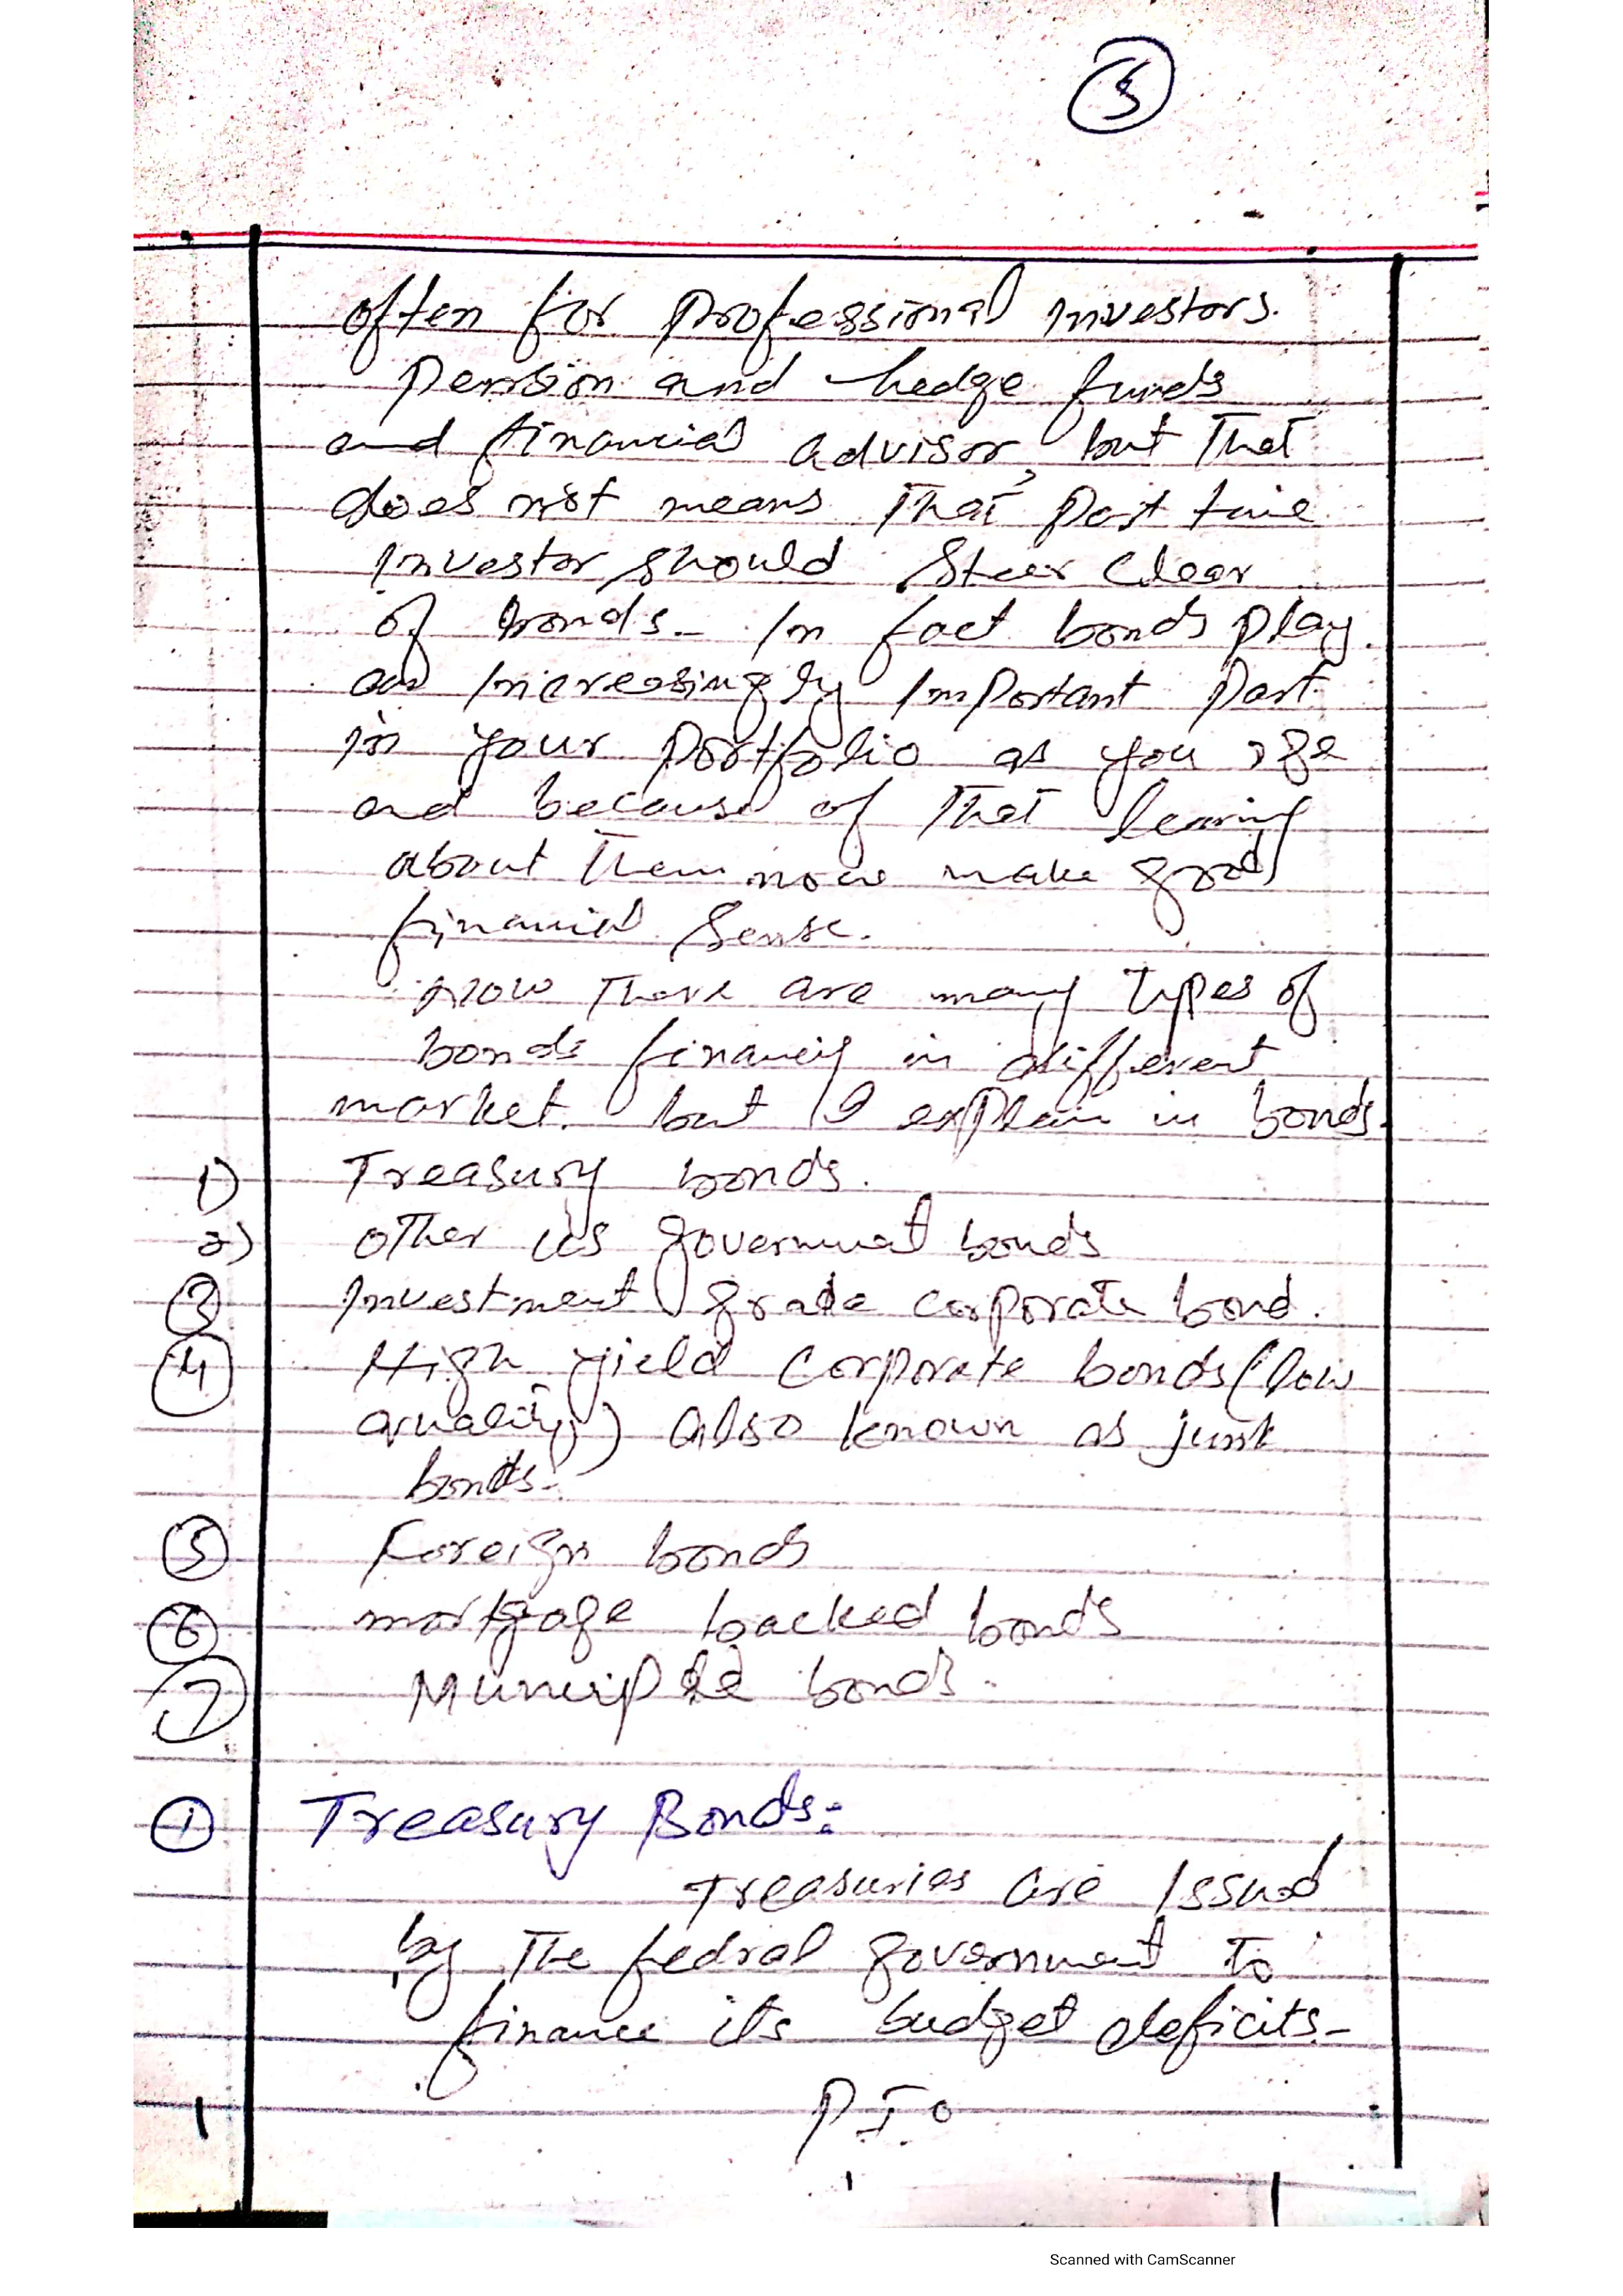 5
often for professional investors.
pension and hedge funds
and financial advisor, but that
does not means that part time
investor should steer clear
of bonds. In fact bonds play
an increasingly important part
in your portfolio as you age
and because of that learing
about them now make good
financial sense.
Now there are many types of
bonds financig in different
market. but I explain in bonds.
1) Treasury bonds.
2) other US government bonds
3 Investment grade corporate bond.
4 High yield corporate bonds (low
quality) also known as junk
bonds.
5 Foreign bonds
6 mortgage backed bonds
7 bonds.
1 Treasury Bonds:
Treasuries are issued
by the fedral government to
finance its budget deficits.
P.T.O
Scanned with CamScanner